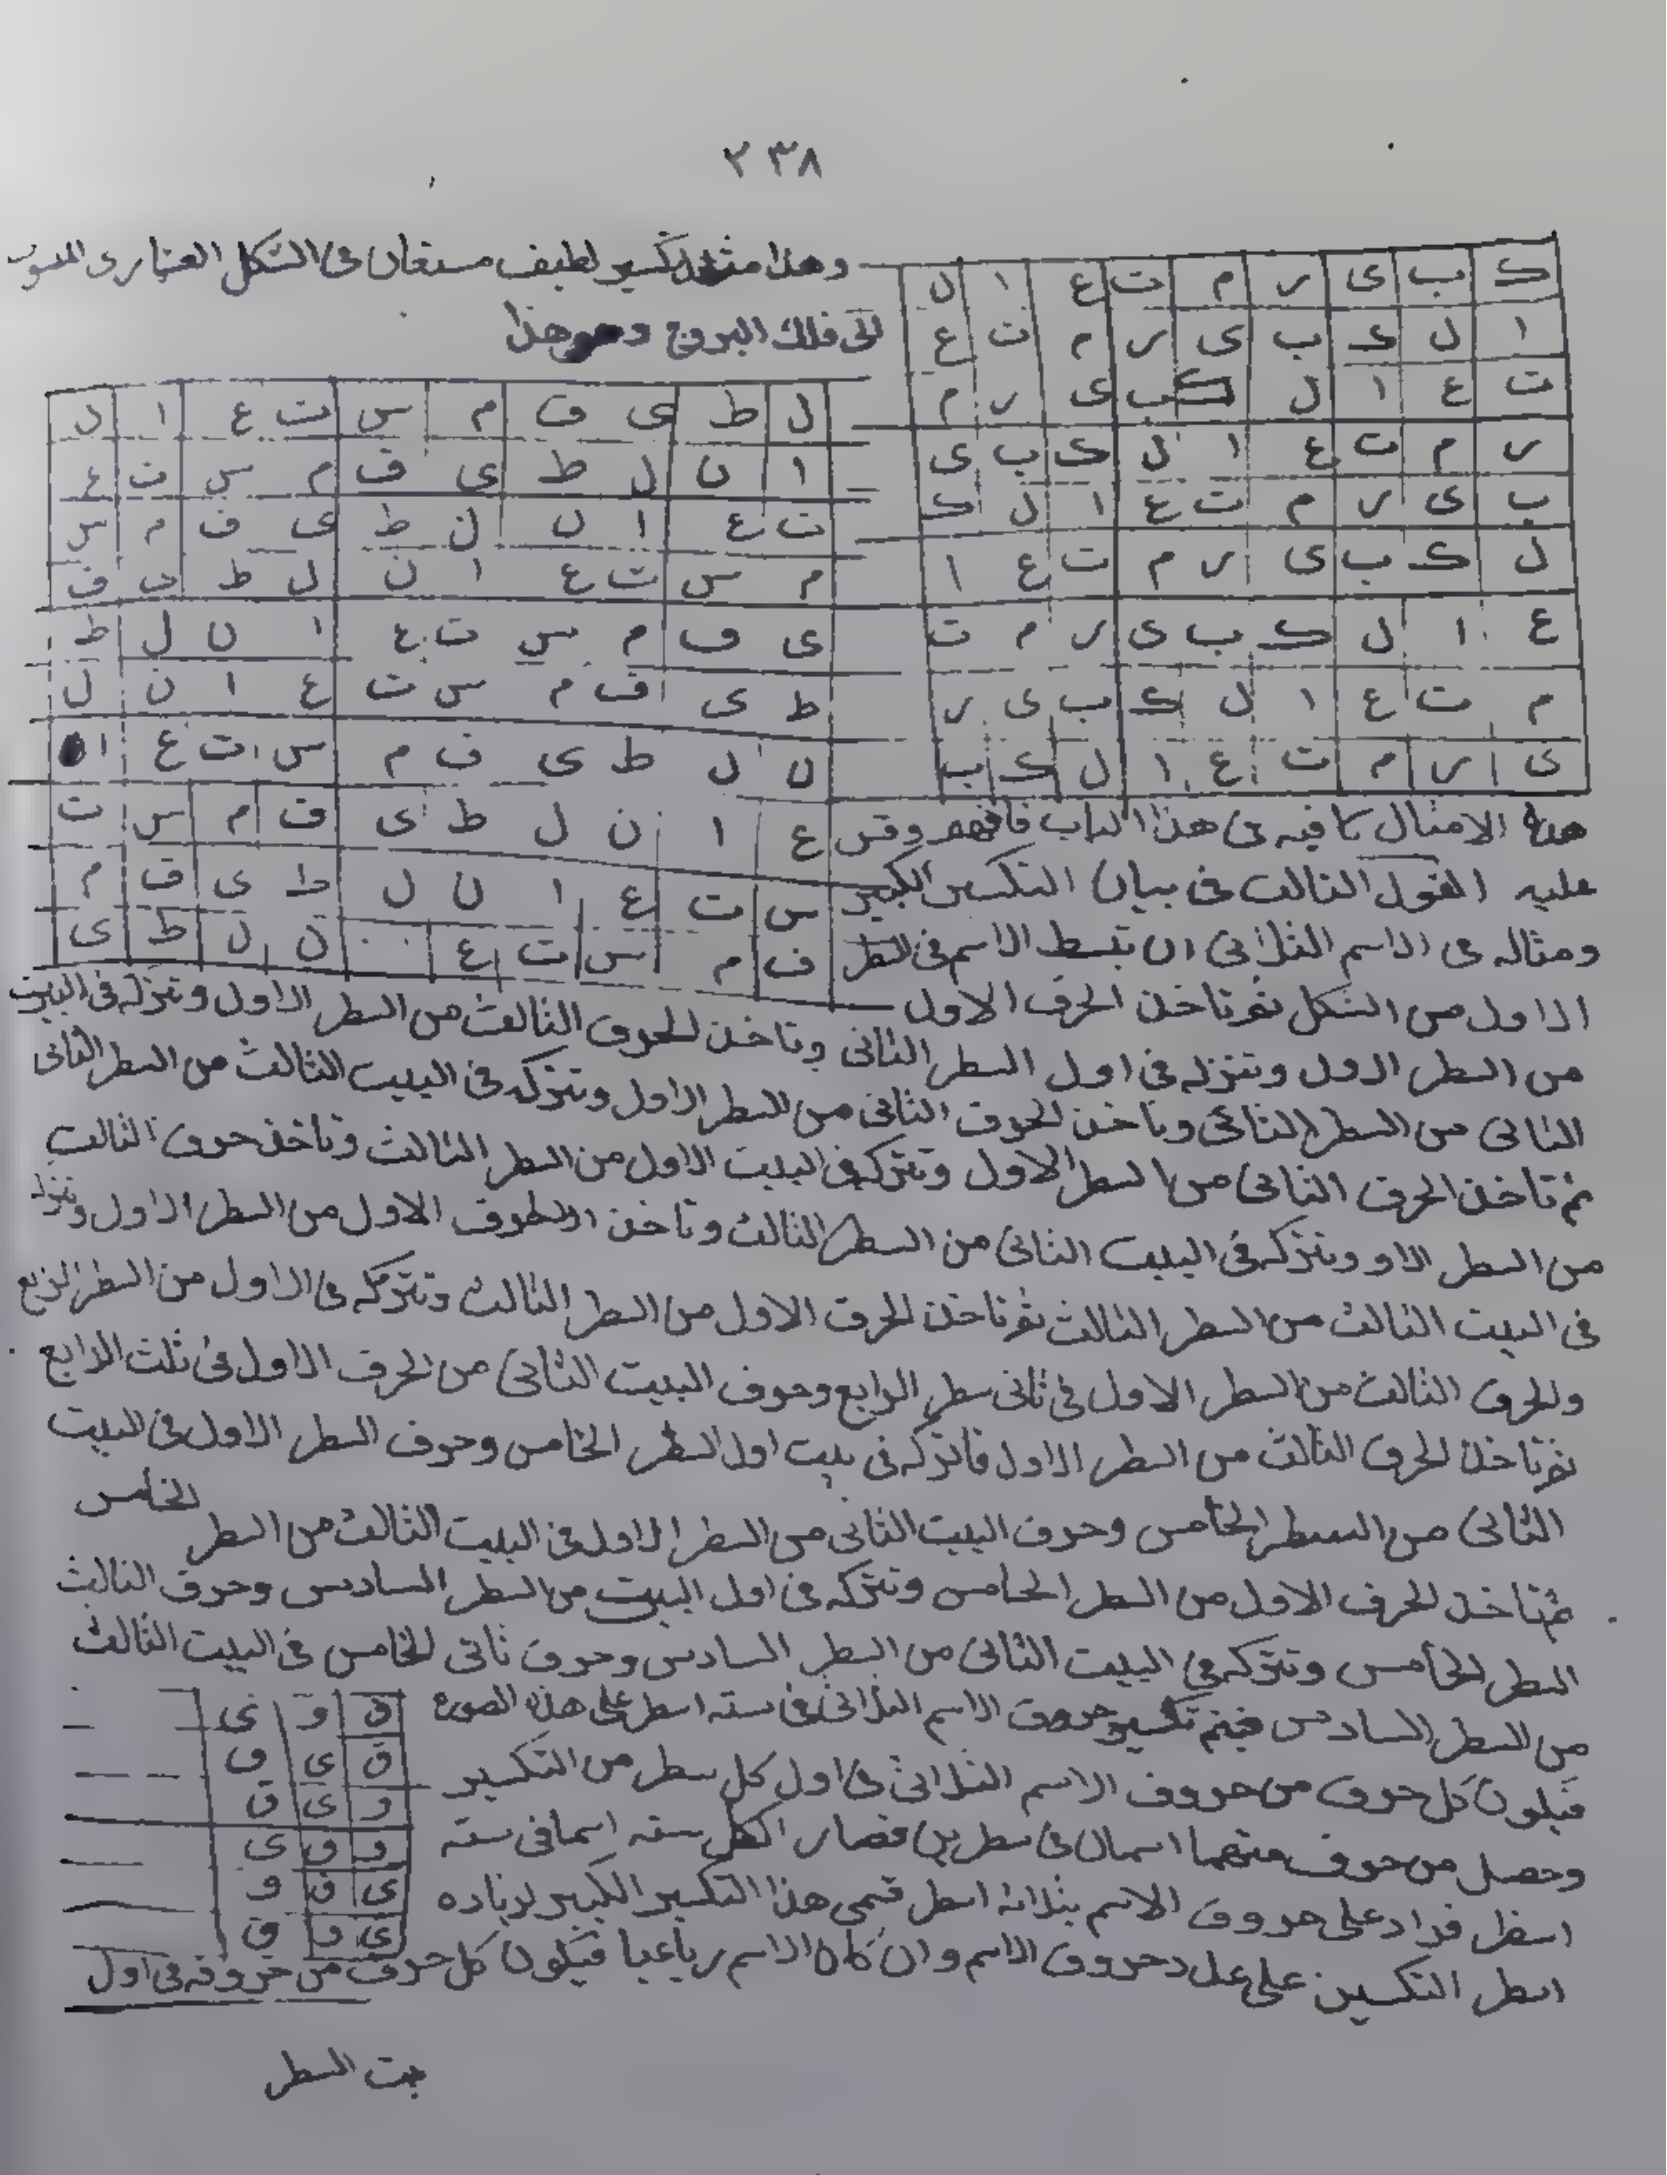 ٢٣٨
وهذا مثل تكسير لطيف مستعان فى الشكل
الى فلك البروج وهو هذا
ك ب ى ر م ت ع ا ل
ا ل ك ب ى ر م ت ع
ت ع ا ل ك ب ى ر م
ر م ت ع ا ل ك ب ى
ب ى ر م ت ع ا ل ك
ل ك ب ى ر م ت ع ا
ع ا ل ك ب ى ر م ت
م ت ع ا ل ك ب ى ر
ى ر م ت ع ا ل ك ب
ل ط ى ف م س ت ع ا ن
ا ن ل ط ى ف م س ت ع
ت ع ا ن ل ط ى ف م س
م س ت ع ا ن ل ط ى ف
ى ف م س ت ع ا ن ل ط
ط ى ف م س ت ع ا ن ل
ن ل ط ى ف م س ت ع ا
ع ا ن ل ط ى ف م س ت
س ت ع ا ن ل ط ى ف م
ف م س ت ع ن ل ط ى
هذه الامثال كافيه فى هذا الباب فافهم وقس
عليه القول الثالث فى بيان التكسير الكبير
ومثاله فى الاسم الثلاثى ان تبسط الاسم فى السطر
الاول من الشكل ثم تاخذ الحرف الاول
من السطر الاول وتنزله فى اول السطر الثانى وتاخذ الحرف الثالث من السطر الاول وتنزله فى البيت
الثانى من السطر الثانى وتاخذ الحرف الثانى من السطر الاول وتتركه فى البيت الثالث من السطر الثانى
ثم تاخذ الحرف الثانى من السطر الاول وتتركه فى البيت الاول من السطر الثالث وتاخذ حرف الثالث
من السطر الاو وتتركه فى البيت الثانى من السطر الثالث وتاخذ الحرف الاول من السطر الاول وتنزله
فى البيت الثالث من السطر الثالث ثم تاخذ الحرف الاول من السطر الثالث وتتركه فى الاول من السطر الرابع
والحرف الثالث من السطر الاول فى ثانى سطر الرابع وحرف البيت الثانى من الحرف الاول فى ثلث الرابع
ثم تاخذ الحرف الثالث من السطر الاول فاتركه فى بيت اول السطر الخامس وحرف السطر الاول فى البيت
الثانى من السطر الخامس وحرف البيت الثانى من السطر الاول فى البيت الثالث من السطر الخامس
ثم تاخذ الحرف الاول من السطر الخامس وتتركه فى اول البيت من السطر السادس وحرف الثالث
السطر الخامس وتتركه فى البيت الثانى من السطر السادس وحرف ثانى الخامس فى البيت الثالث
من السطر السادس فيتم تكسير حروف الاسم الثلاثى فى سته اسطر على هذه الصورة
فيكون كل حرف من حروف الاسم الثلاثى فى اول كل سطر من التكسير
وحصل من حرف منهما اسمان فى سطرين فصار الكل سته اسما فى سته
اسطر فزاد على حروف الاسم بثلاثه اسطر فسمى هذا التكسير الكبير لزياده
اسطر التكسير على عدد حروف الاسم وان كان الاسم رباعيا فيكون كل حرف من حروفه فى اول
ق و ى
ق ى و
و ى ق
و ق ى
ى ق و
ى و ق
السطر